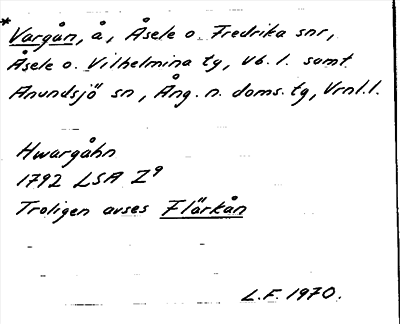 * Vargån, å, Åsele o. Fredrika snr,
Åsele o. Vilhelmina tg, Vb. l. samt
Anundsjö sn, Ång. n. doms. tg, Vrnl. l.
Hwargåhn
1792 LSA Z⁹
Troligen avses Flärkån
L.F. 1970.